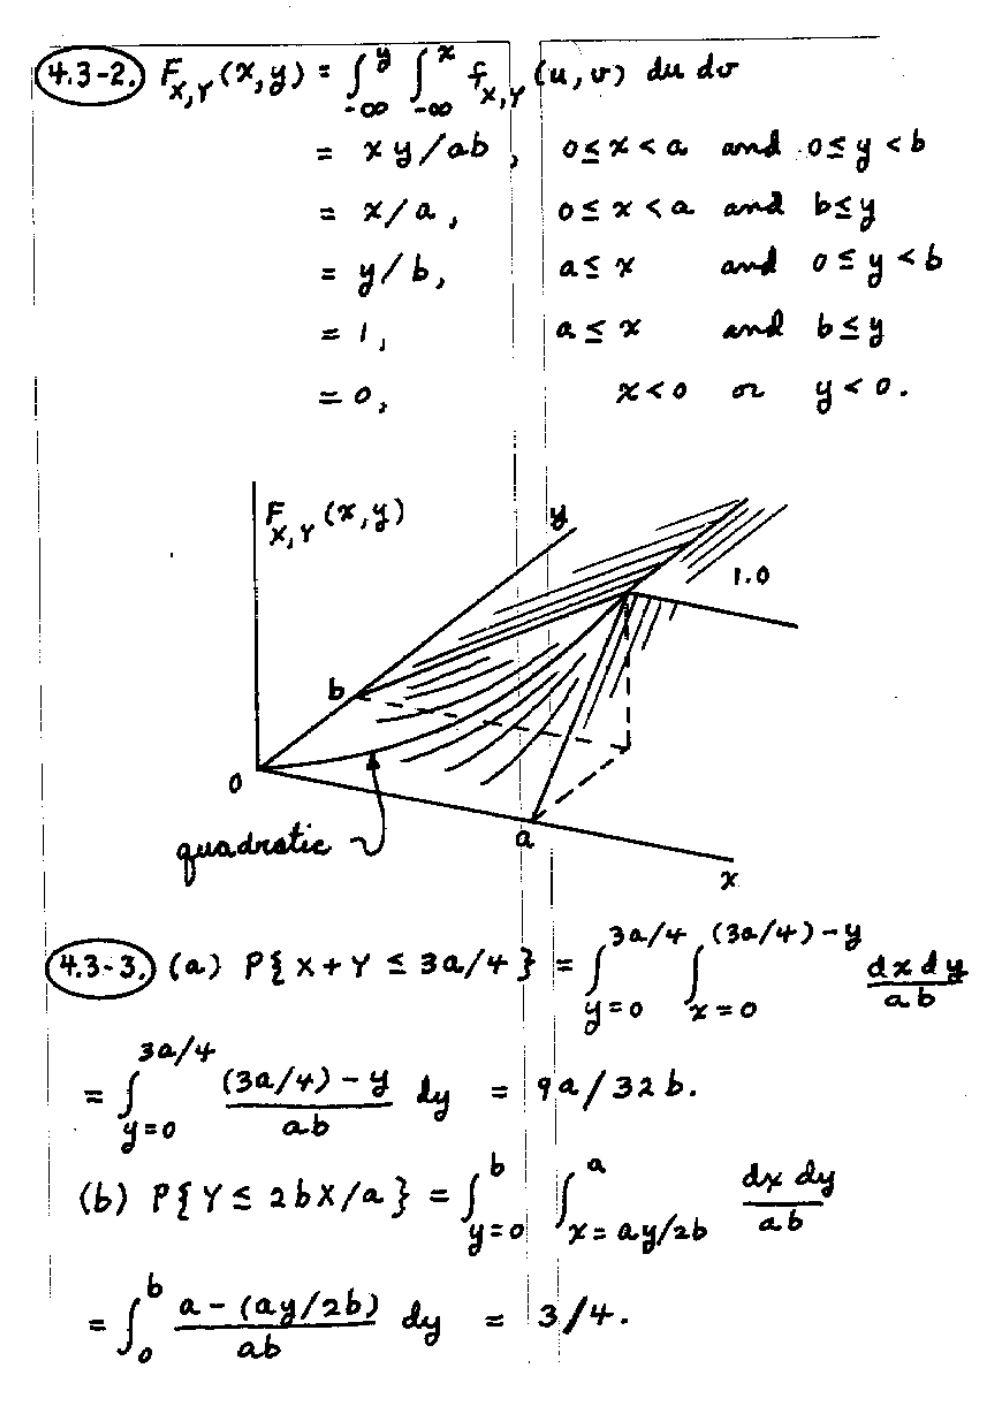 4.3-2. F_{X,Y}(x,y) = ∫_{-∞}^{y} ∫_{-∞}^{x} f_{X,Y}(u,v) du dv
= xy/ab, 0≤x<a and 0≤y<b
= x/a, 0≤x<a and b≤y
= y/b, a≤x and 0≤y<b
= 1, a≤x and b≤y
= 0, x<0 or y<0.
F_{X,Y}(x,y)
y
1.0
b
0
a
quadratic
x
4.3-3. (a) P{X+Y ≤ 3a/4} = ∫_{y=0}^{3a/4} ∫_{x=0}^{(3a/4)-y} dx dy / ab
= ∫_{y=0}^{3a/4} (3a/4)-y / ab dy = 9a/32b.
(b) P{Y ≤ 2bX/a} = ∫_{y=0}^{b} ∫_{x=ay/2b}^{a} dx dy / ab
= ∫_{0}^{b} a-(ay/2b) / ab dy = 3/4.